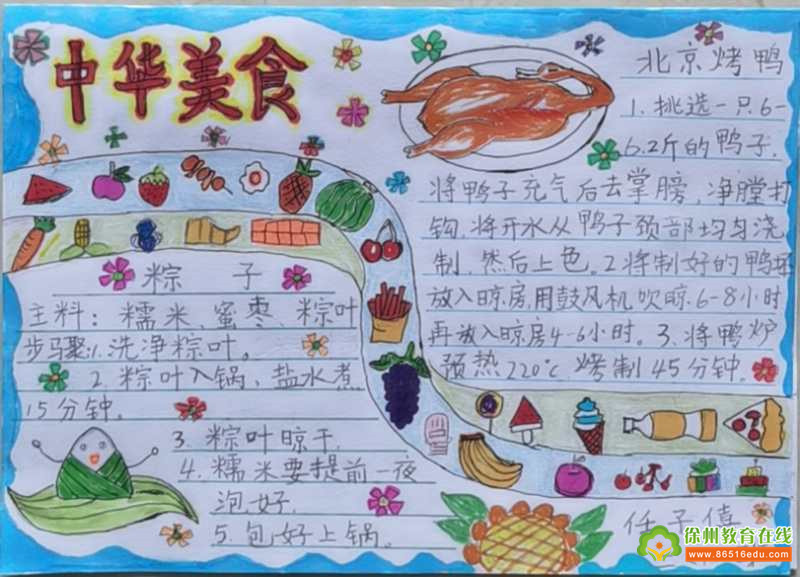 中华美食
北京烤鸭
1.挑选一只6-
6.2斤的鸭子.
将鸭子充气后去掌膀,净膛打
钩.将开水从鸭子颈部均匀浇
制,然后上色。2将制好的鸭坯
放入晾房,用鼓风机吹晾.6-8小时
再放入晾房4-6小时。3、将鸭炉
预热220°C烤制45分钟。
粽 子
主料:糯米、蜜枣、粽叶
步马聚:1.洗净粽叶。
2.粽叶入锅、盐水煮
15分钟。
3.粽叶晾干.
4.糯米要提前一夜
泡好.
5.包好上锅.
任子僖
徐州教育在线
www.86516edu.com